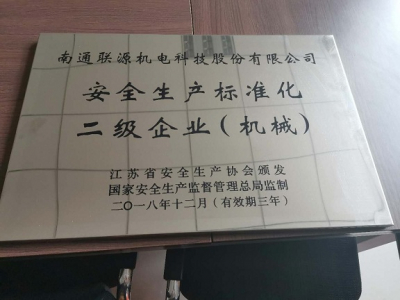 南通联源机电科技股份有限公司
安全生产标准化
二级企业(机械)
江苏省安全生产协会颁发
国家安全生产监督管理总局监制
二〇一八年十二月(有效期三年)